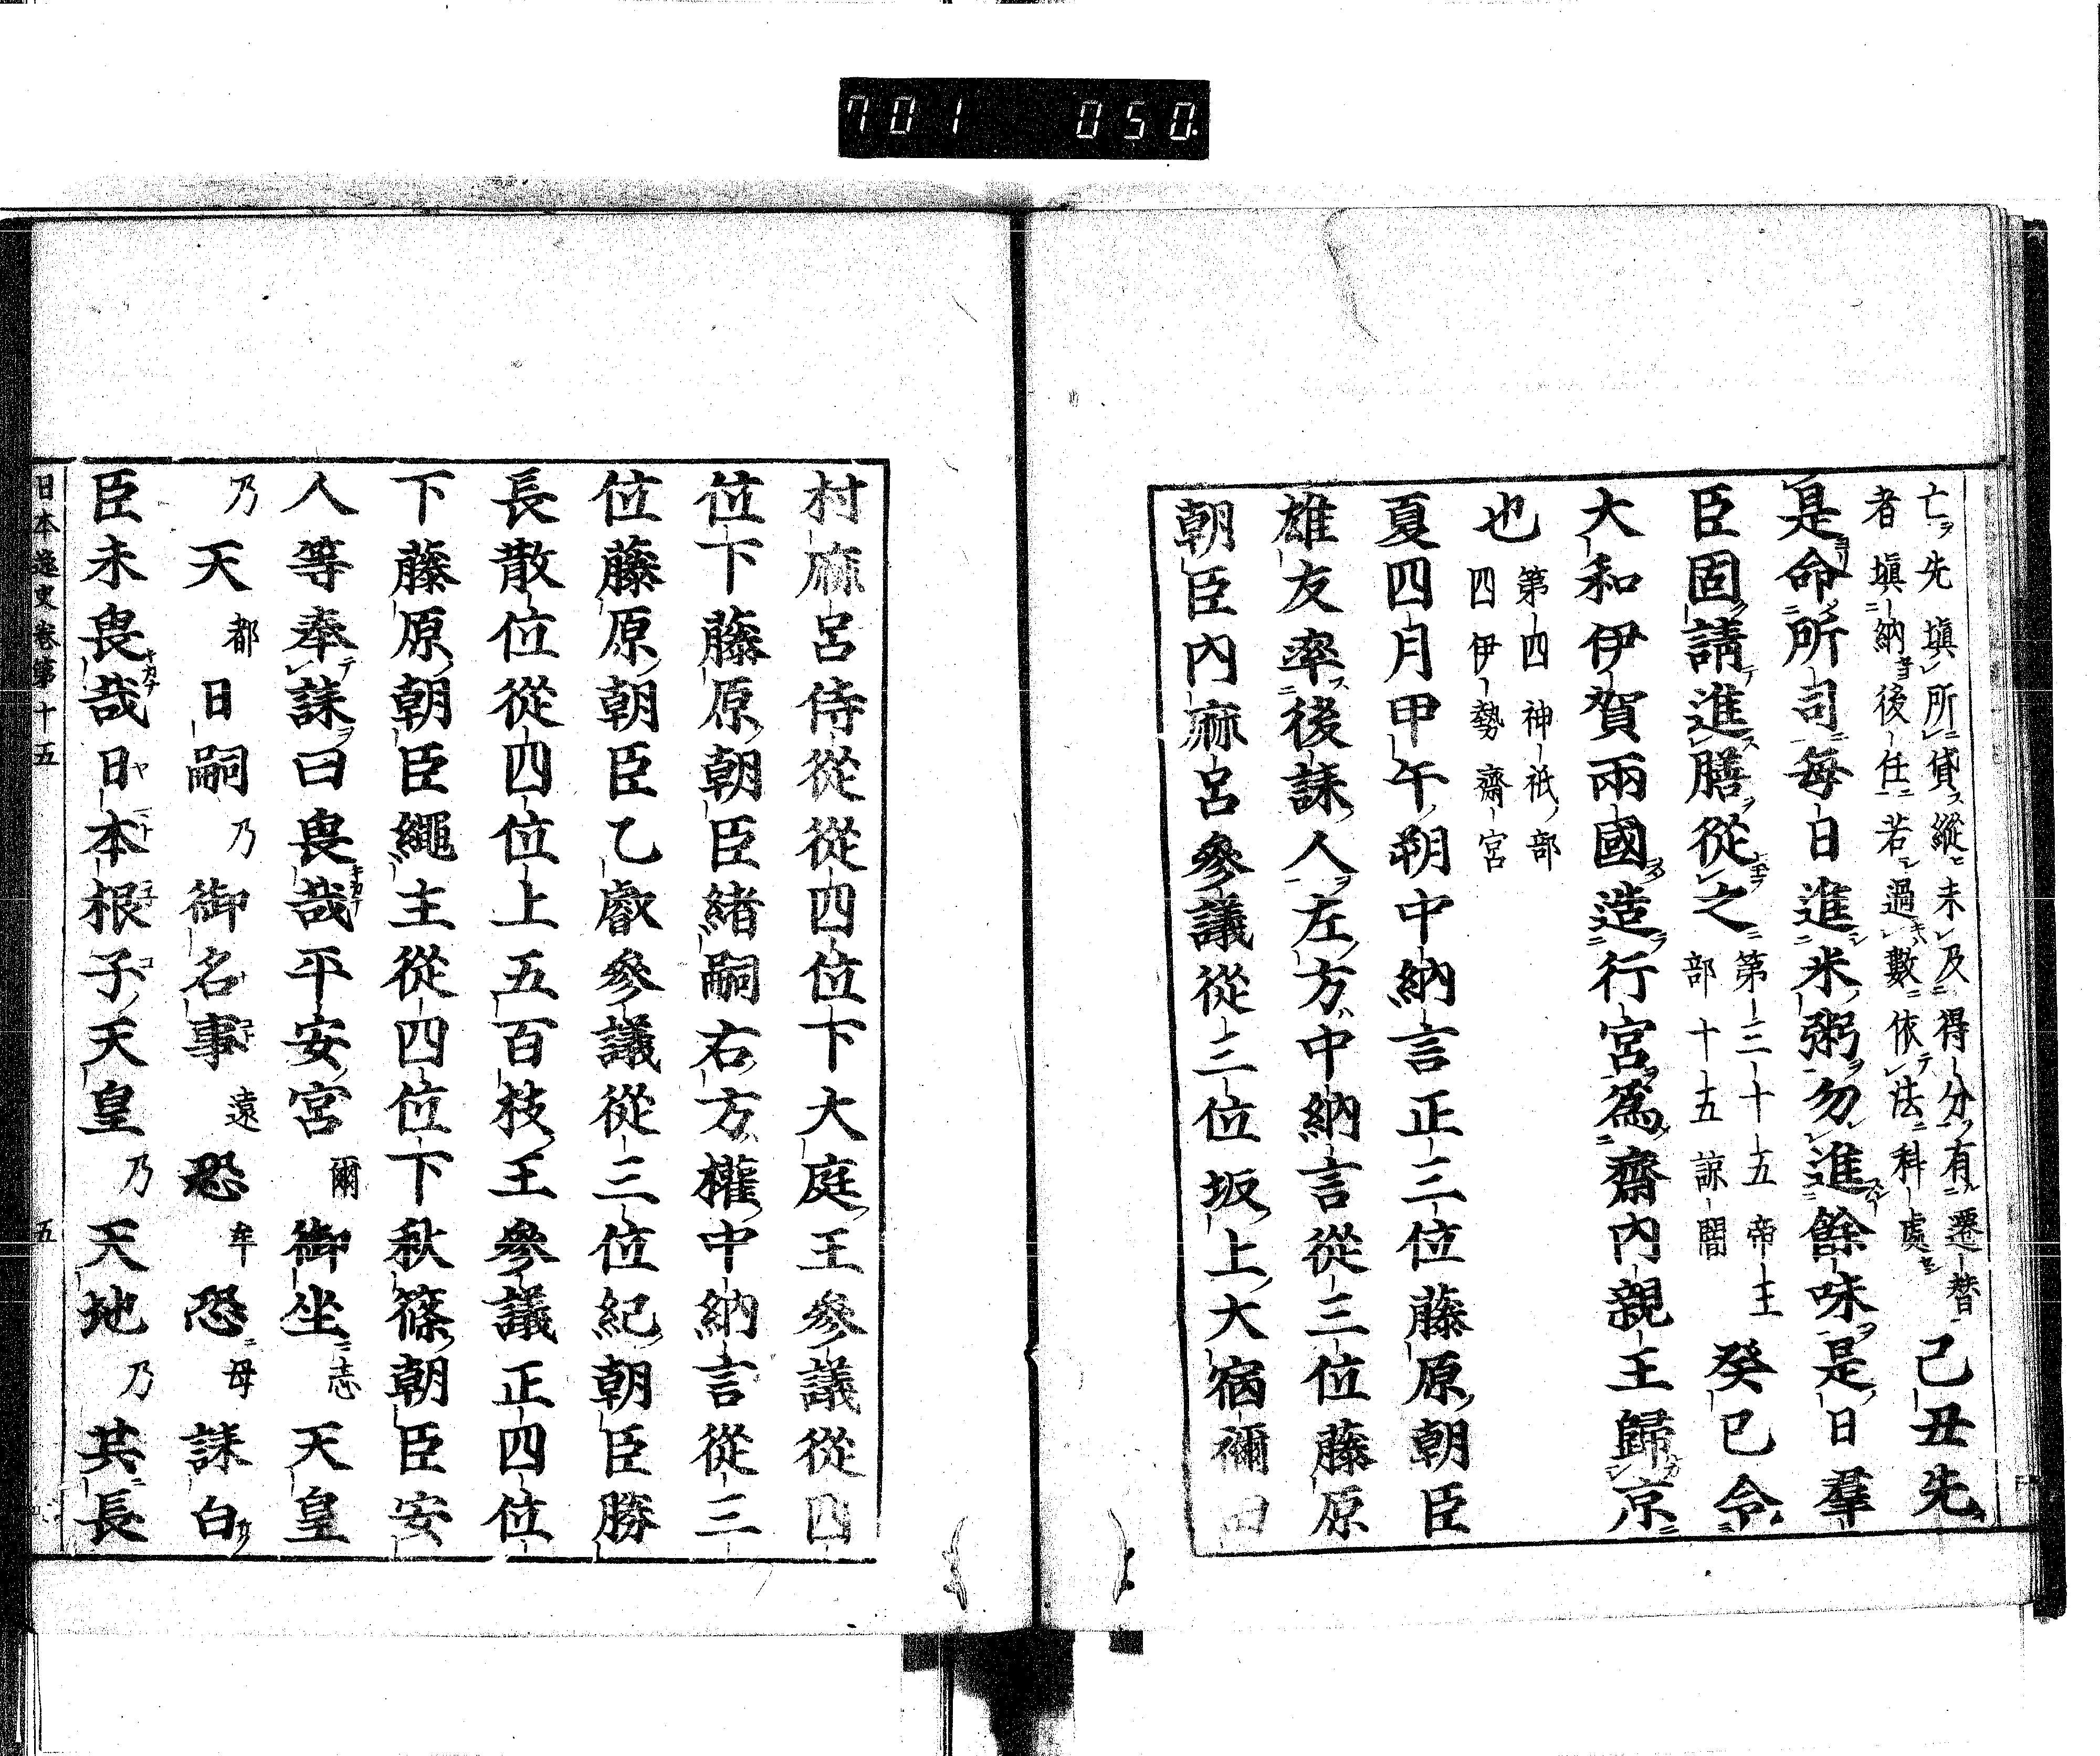 701 050.
亡先塡所貸縱未及得分有遷替
者塡納後任若過數依法科處
己丑先
是命所司每日進米粥勿進餘味是日羣
臣固請進膳從之
第三十五帝王
部十五諒闇
癸巳令
大和伊賀兩國造行宮爲齋內親王歸京
也
第四神祇部
四伊勢齋宮
夏四月甲午朔中納言正三位藤原朝臣
雄友率後誄人左方中納言從三位藤原
朝臣內麻呂參議從三位坂上大宿禰田
村麻呂侍從從四位下大庭王參議從四
位下藤原朝臣緒嗣右方權中納言從三
位藤原朝臣乙叡參議從三位紀朝臣勝
長散位從四位上五百枝王參議正四位
下藤原朝臣繩主從四位下秋篠朝臣安
人等奉誄曰畏哉平安宮爾御坐志天皇
乃天都日嗣乃御名事遠恐牟恐母誄白
臣未畏哉日本根子天皇乃天地乃共長
日本逸史卷第十五 五